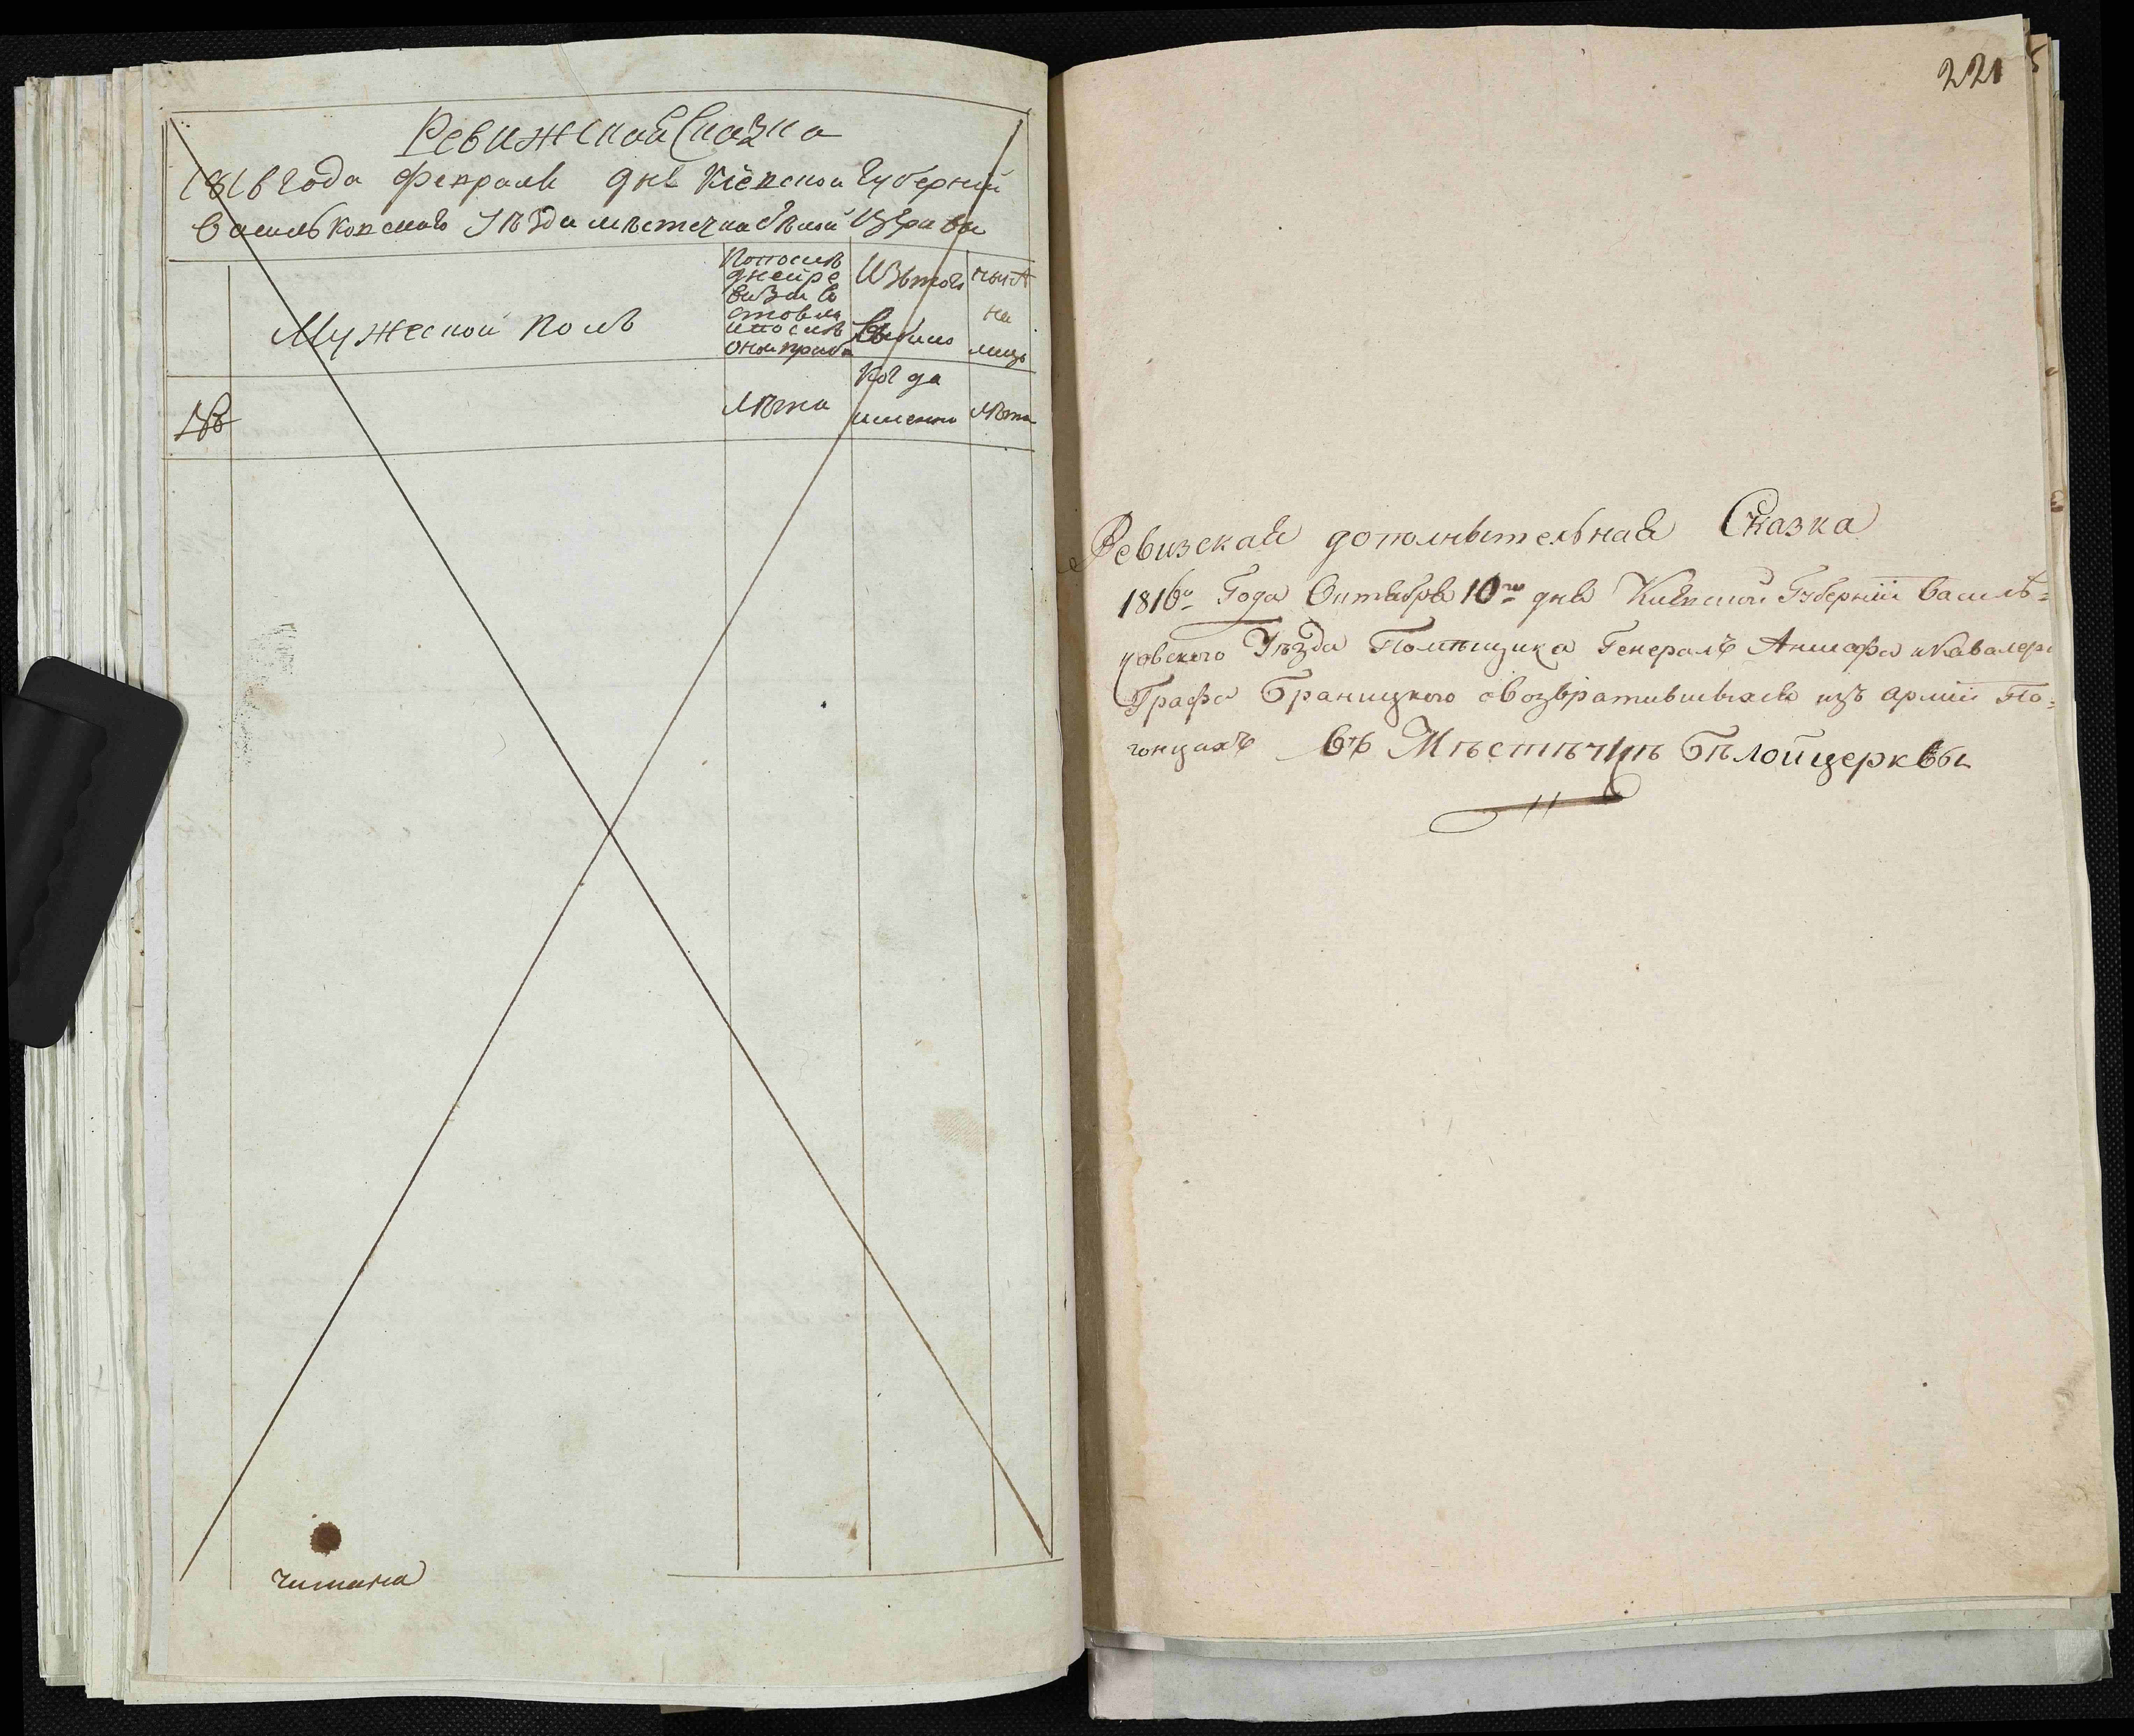 Ревижская Сказка
1816 года февраля дня Кіевской Губерніи
Васильковскаго Уѣзда мѣстечка бѣлой Церкви
Мужеской полъ
По послѣ
дней ре
визіи со
стояло
и послѣ
оной прибы
Изъ того
выбыло
ныня
на
лицо
№
Лѣта
Когда
именно
Лѣта
читана
221
Ревизская дополнытельная Сказка
1816го Года Октября 10го дня Киевской Губерніи Василь=
ковского Уѣзда Помѣщика Генералъ Аншефа и Кавалера
Графа Браницкого о возвратившыхся изъ арміи По=
гонцахъ въ Мѣстѣчкѣ Бѣлойцерквы